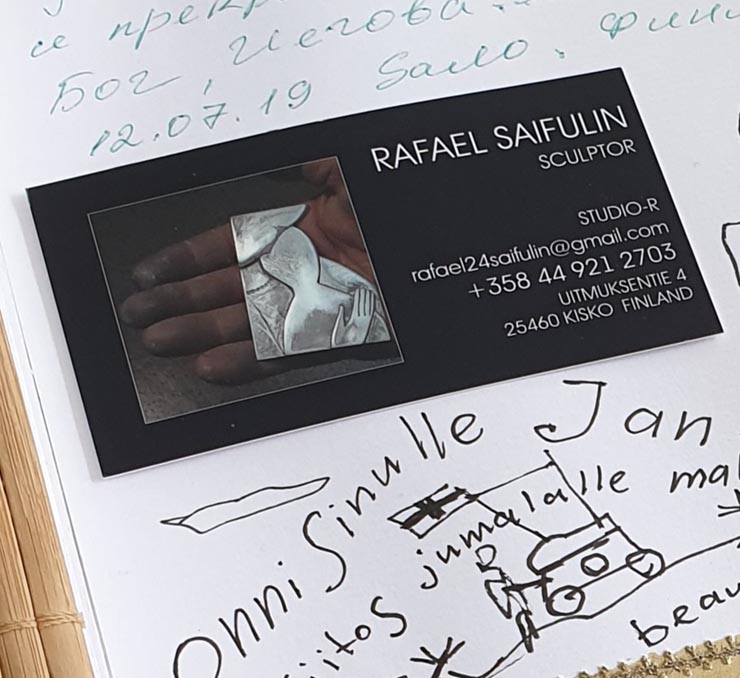 и прекр
Бог, Иегова.
12.07.19 Salo. Фин
RAFAEL SAIFULIN
SCULPTOR
STUDIO-R
rafael24saifulin@gmail.com
+358 44 921 2703
UITMUKSENTIE 4
25460 KISKO FINLAND
Onni Sinulle Jan
iitos jumalalle ma
beau